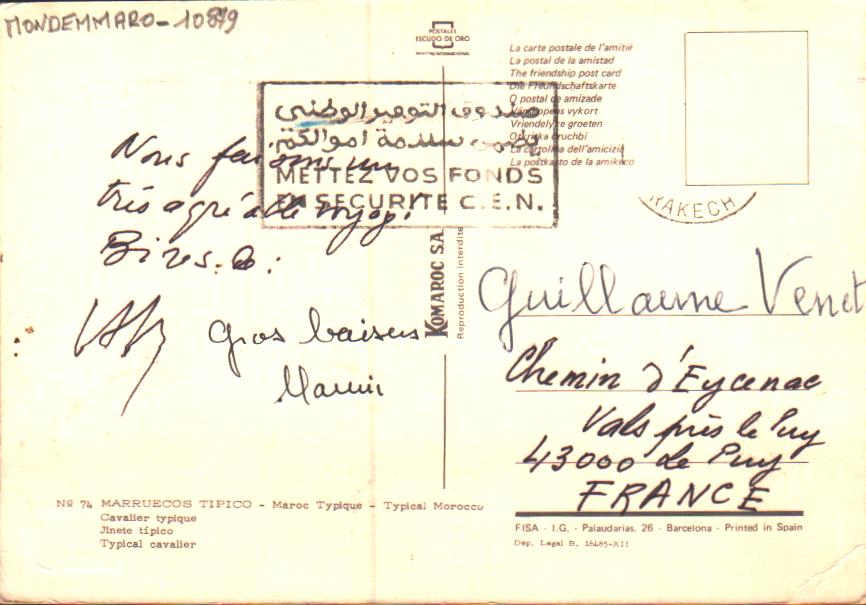 MONDEMMARO-10879
POSTALES
ESCUDO DE ORO
La carte postale de l'amitié
La postal de la amistad
The friendship post card
Die Freundschaftskarte
O postal de amizade
vykort
Vriendelyke groeten
La cartolina dell'amicizia
La postkarto de la amikeco
صندوق التوفير الوطني
يضمن سلامة اموالكم
METTEZ VOS FONDS
EN SECURITE C.E.N.
RAKECH
Nous faisons un
très agréable voyage.
Bises de:
Gros baisers
Mamie
KOMAROC S.A.
Reproduction interdite
Guillaume Venet
Chemin d'Eycenac
Vals près le Puy
43000 Le Puy
FRANCE
Nº 74 MARRUECOS TIPICO - Maroc Typique - Typical Morocco
Cavalier typique
Jinete típico
Typical cavalier
FISA - I.G. - Palaudarias, 26 - Barcelona - Printed in Spain
Dep. Legal B. 16485-XII